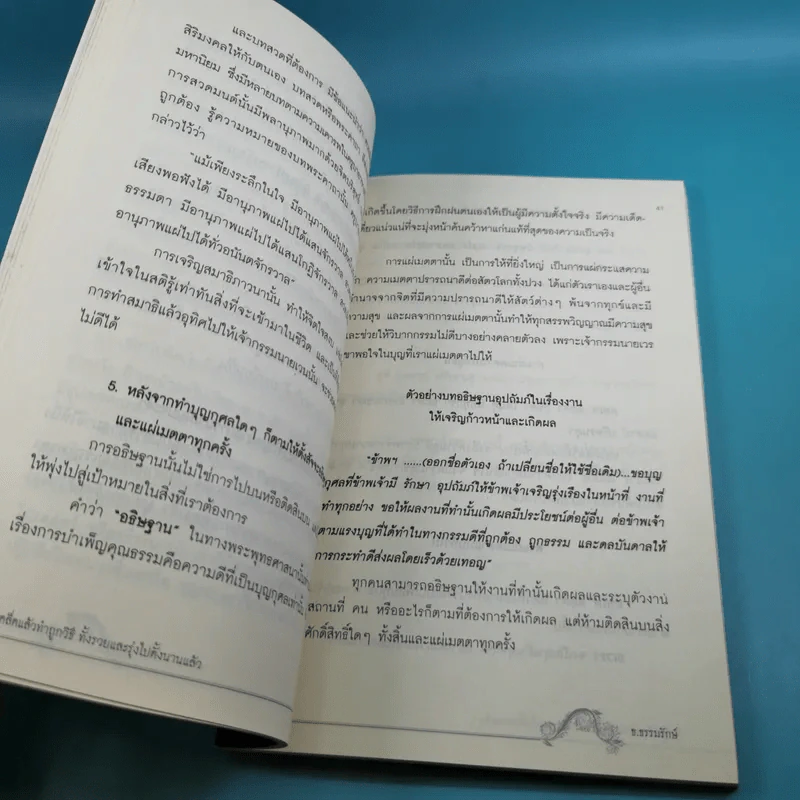 และบทสวดที่ต้องการ มีข้อแนะนำ
สิริมงคลให้กับตนเอง บทสวดหรือพระคาถา
มหานิยม ซึ่งมีหลายบทตามความเคารพ
การสวดมนต์นั้นมีพลานุภาพมากด้วย
ถูกต้อง รู้ความหมายของบทพระคาถานั้น
กล่าวไว้ว่า
"แม้เพียงระลึกในใจ มีอานุภาพแผ่ไปได้
เสียงพอฟังได้ มีอานุภาพแผ่ไปได้แสนจักรวาล
ธรรมดา มีอานุภาพแผ่ไปได้แสนโกฏิจักรวาล
อานุภาพแผ่ไปได้ทั่วอนันตจักรวาล"
การเจริญสมาธิภาวนานั้น ทำให้จิตใจสงบ
เข้าใจในสติรู้เท่าทันสิ่งที่จะเข้ามาในชีวิต และ
การทำสมาธิแล้วอุทิศไปให้เจ้ากรรมนายเวรนั้น
ไม่ดีได้
5. หลังจากทำบุญกุศลใดๆ ก็ตามให้ตั้งสัจจะ
และแผ่เมตตาทุกครั้ง
การอธิษฐานนั้นไม่ใช่การไปบนหรือติดสินบน
ให้พุ่งไปสู่เป้าหมายในสิ่งที่เราต้องการ
คำว่า "อธิษฐาน" ในทางพระพุทธศาสนานั้น
เรื่องการบำเพ็ญคุณธรรมคือความดีที่เป็นบุญกุศลเท่านั้น
คลิ๊กแล้วทำถูกวิธี ทั้งรวยและรุ่งไปตั้งนานแล้ว
41
เกิดขึ้นโดยวิธีการฝึกฝนตนเองให้เป็นผู้มีความตั้งใจจริง มีความเด็ด-
เดี่ยวแน่วแน่ที่จะมุ่งหน้าค้นคว้าหาแก่นแท้ที่สุดของความเป็นจริง
การแผ่เมตตานั้น เป็นการให้ที่ยิ่งใหญ่ เป็นการแผ่กระแสความ
ความเมตตาปรารถนาดีต่อสัตว์โลกทั้งปวง ได้แก่ตัวเราเองและผู้อื่น
อำนาจจากจิตที่มีความปรารถนาดีให้สัตว์ต่างๆ พ้นจากทุกข์และมี
ความสุข และผลจากการแผ่เมตตานั้นทำให้ทุกสรรพวิญญาณมีความสุข
และช่วยให้วิบากกรรมไม่ดีบางอย่างคลายตัวลง เพราะเจ้ากรรมนายเวร
ขาพอใจในบุญที่เราแผ่เมตตาไปให้
ตัวอย่างบทอธิษฐานอุปถัมภ์ในเรื่องงาน
ให้เจริญก้าวหน้าและเกิดผล
"ข้าพฯ ......(ออกชื่อตัวเอง ถ้าเปลี่ยนชื่อให้ใช้ชื่อเดิม)...ขอบุญ
กุศลที่ข้าพเจ้ามี รักษา อุปถัมภ์ให้ข้าพเจ้าเจริญรุ่งเรืองในหน้าที่ งานที่
ทำทุกอย่าง ขอให้ผลงานที่ทำนั้นเกิดผลมีประโยชน์ต่อผู้อื่น ต่อข้าพเจ้า
ตามแรงบุญที่ได้ทำในทางกรรมดีที่ถูกต้อง ถูกธรรม และดลบันดาลให้
การกระทำดีส่งผลโดยเร็วด้วยเทอญ"
ทุกคนสามารถอธิษฐานให้งานที่ทำนั้นเกิดผลและระบุตัวงาน
สถานที่ คน หรืออะไรก็ตามที่ต้องการให้เกิดผล แต่ห้ามติดสินบนสิ่ง
ศักดิ์สิทธิ์ใดๆ ทั้งสิ้นและแผ่เมตตาทุกครั้ง
ธ.ธรรมรักษ์